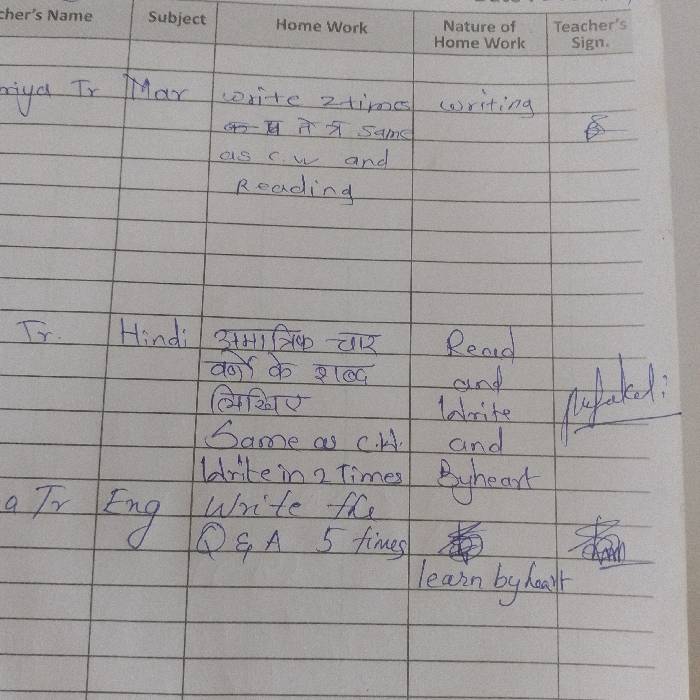 cher's Name Subject Home Work Nature of Home Work Teacher's Sign.
riya Tr Mar write 2 times writing
same
as c.w and
Reading
Tr. Hindi अमात्रिक चार Read
वर्णो के शब्द and
लिखिए Write
Same as C.W. and
Write in 2 Times Byheart
a Tr Eng Write the
Q & A 5 times
learn by heart